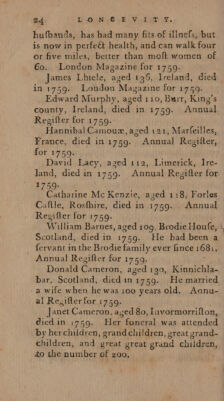 24 LONGEVITY.
huſbands, has had many fits of illneſs, but
is now in perfect health, and can walk four
or five miles, better than moſt women of
60. London Magazine for 1759.
James Lhiele, aged 136, Ireland, died
in 1759. London Magazine for 1759.
Edward Murphy, aged 110, Burr, King's
county, Ireland, died in 1759. Annual
Regiſter for 1759.
Hannibal Camoux, aged 121, Marſeilles,
France, died in 1759. Annual Regiſter,
for 1759.
David Lacy, aged 112, Limerick, Ire-
land, died in 1759. Annual Regiſter for
1759.
Catharine Mc Kenzie, aged 118, Forles
Caſtle, Roſſhire, died in 1759. Annual
Regiſter for 1759.
William Barnes, aged 109. Brodie Houſe,
Scotland, died in 1759. He had been a
ſervant in the Brodie family ever ſince 1681.
Annual Regiſter for 1759.
Donald Cameron, aged 130, Kinnichla-
bar, Scotland, died in 1759. He married
a wife when he was 100 years old. Annu-
al Regiſter for 1759.
Janet Cameron, aged 80, Invormorriſton,
died in 1759. Her funeral was attended
by her children, grand children, great grand-
children, and great great grand children,
to the number of 200,